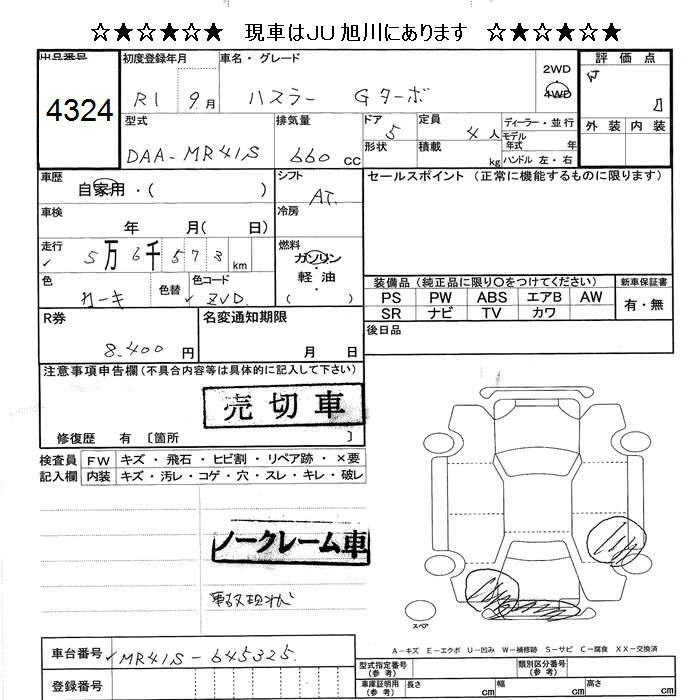 ☆★☆★☆★ 現車はJU旭川にあります ☆★☆★☆★
出品番号 初度登録年月 車名・グレード 評価点
4324 R1 9月 ハスラー Gターボ 2WD 4WD
型式 排気量 ドア 定員 ディーラー・並行 外装 内装
DAA-MR41S 660 cc 5 4人 モデル年式 年
形状 積載 kg ハンドル 左・右
車歴 シフト セールスポイント (正常に機能するものに限ります)
自家用・( ) AT.
車検 冷房
年 月( 日)
走行 燃料
5万6千573km ガソリン
軽油
色 色替 色コード ( )
カーキ ZVD 装備品(純正品に限り○をつけてください) 新車保証書
PS PW ABS エアB AW 有・無
SR ナビ TV カワ
R券 名変通知期限 後日品
8.400円 月 日
注意事項申告欄(不具合内容等は具体的に記入して下さい)
売切車
修復歴 有 〔箇所 〕
検査員 FW キズ・飛石・ヒビ割・リペア跡・×要
記入欄 内装 キズ・汚レ・コゲ・穴・スレ・キレ・破レ
ノークレーム車
事故現状
スペア
A-キズ E-エクボ U-凹み W-補修跡 S-サビ C-腐食 XX-交換済
車台番号 MR41S-645325 型式指定番号(参考) 類別区分番号(参考)
登録番号 車庫証明用(参考) 長さ cm 幅 cm 高さ cm